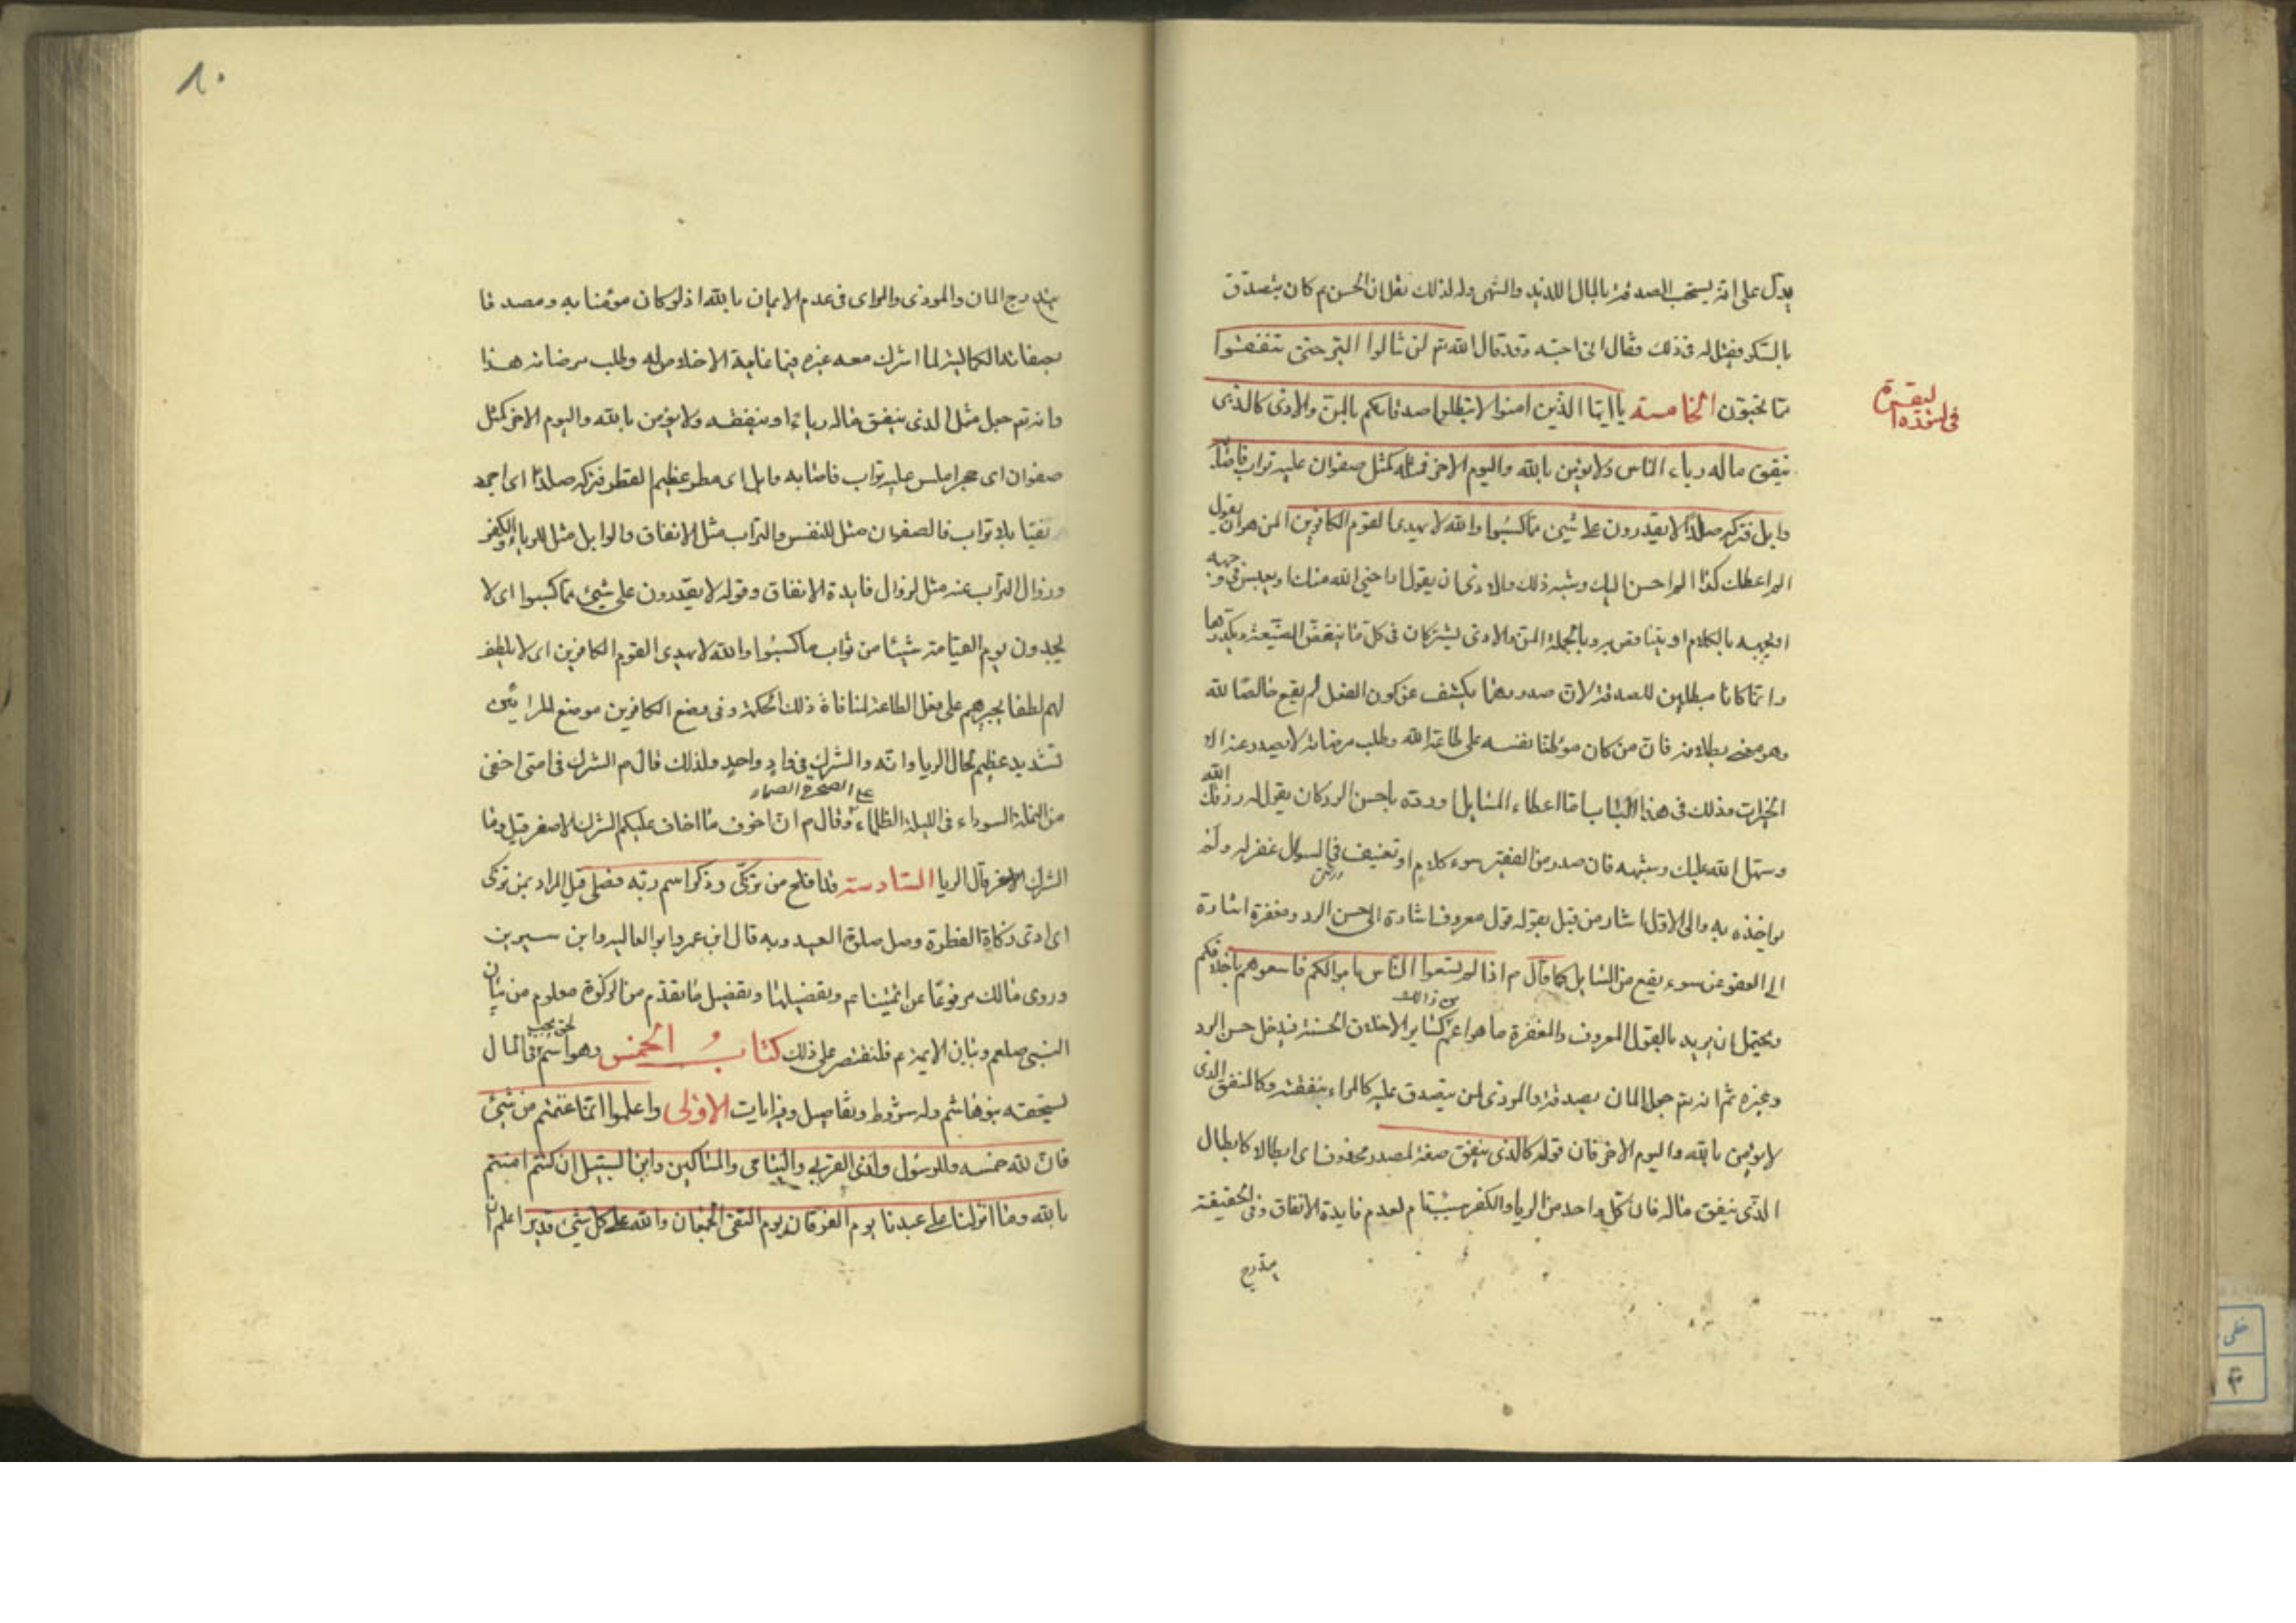 يدل على انه يستحب الصدقة بالمال اللذيذ والشهى وله لذلك نقل ان الحسن م كان يتصدق
بالسكر فقيل له فى ذلك فقال انى احبه وقد قال الله تم لن تنالوا البر حتى تنفقوا
مما تحبون الخامسة يا ايها الذين امنوا لا تبطلوا صدقاتكم بالمن والاذى كالذى
البقرة
ينفق ماله رياء الناس ولا يؤمن بالله واليوم الاخر فمثله كمثل صفوان عليه تراب فاصابه
وابل فتركه صلدا لا يقدرون على شئ مما كسبوا والله لا يهدى القوم الكافرين المن هو ان يقول
الم اعطك كذا الم احسن اليك وشبه ذلك والاذى ان يقول اراحنى الله منك او يعبس فى وجهه
او يجبهه بالكلام او يتناقص به وبالجملة المن والاذى يشتركان فى كل ما ينغص الصنيعة ويكدرها
وانما كانا مبطلين للصدقة لان صدورهما يكشف عن كون الفعل لم يقع خالصا لله
وهو معنى بطلانه فان من كان موطنا نفسه على طاعة الله وطلب مرضاته لا يصدر عنه الا
الخيرات وذلك فى هذا الباب اما اعطاء السايل او رده باحسن الرد كان يقول له رزقك الله
وسهل الله عليك وشبهه فان صدر من الفقير سوء كلام او تعنيف فى السوال غفر له ولم
يواخذه به والى الاول اشار من قبل بقوله قول معروف اشارة الى حسن الرد ومغفرة اشارة
الى العفو عن سوء يقع من السايل كما قال م اذا لم تسعوا الناس باموالكم فاسعوهم باخلاقكم
ويحتمل ان يريد بالقول المعروف والمغفرة ما هو اعم من ذالك كساير الاخلاق الحسنة فيدخل حسن الرد
وغيره ثم انه تم جعل المان بصدقته والموذى لمن يتصدق عليه كالمراء بنفقته وكالمنفق الذى
لا يؤمن بالله واليوم الاخر فان قوله كالذى ينفق صفة لمصدر محذوف اى ابطالا كابطال
الذى ينفق ماله فان كل واحد من الريا والكفر سبب تام لعدم فايدة الانفاق وفى الحقيقة
يندرج
٨٠
يندرج المان والموذى والمراى فى عدم الايمان بالله اذ لو كان مؤمنا به ومصدقا
بصفاته الكمالية لما اشرك معه غيره فيما غايبة الاخلاص له وطلب مرضاته هذا
وانه تم جعل مثل الذى ينفق ماله رياء او ينفقه ولا يؤمن بالله واليوم الاخر كمثل
صفوان اى حجر املس عليه تراب فاصابه وابل اى مطر عظيم القطر فتركه صلدا اى اجرد
نقيا بلا تراب فالصفوان مثل للنفس والتراب مثل الانفاق والوابل مثل للرياء والكفر
وزوال التراب عنه مثل لزوال فايدة الانفاق وقوله لا يقدرون على شئ مما كسبوا اى لا
يجدون يوم القيامة شيئا من ثواب ما كسبوا والله لا يهدى القوم الكافرين اى لا يلطف
لهم لطفا يجبرهم على فعل الطاعة لمنافاة ذلك الحكمة وفى وضع الكافرين موضع المرايين
تشديد عظيم لحال الريا وانه والشرك فى واد واحد ولذلك قال م الشرك فى امتى اخفى
من النملة السوداء فى الليلة الظلماء على الصخرة الصماء وقال م ان اخوف ما اخاف عليكم الشرك الاصغر قيل وما
الشرك الاصغر قال الريا السادسة قد افلح من تزكى وذكر اسم ربه فصلى قيل المراد بمن تزكى
اى ادى زكاة الفطرة وصلى صلوة العيد وبه قال ابن عمر وابو العاليه وابن سيرين
وروى ذلك مرفوعا عن ائمتنا عم وتفصيلها وتفصيل ما تقدم من الزكوة معلوم من بيان
النبى صلعم وبيان الايمة م فلنقتصر على ذلك كتاب الخمس وهو اسم لحق يجب فى المال
يستحقه بنو هاشم وله شروط وتفاصيل وفيه ايات الاولى واعلموا انما غنمتم من شئ
فان لله خمسه وللرسول ولذى القربى واليتامى والمساكين وابن السبيل ان كنتم امنتم
بالله وما انزلنا على عبدنا يوم الفرقان يوم التقى الجمعان والله على كل شئ قدير اعلم ان